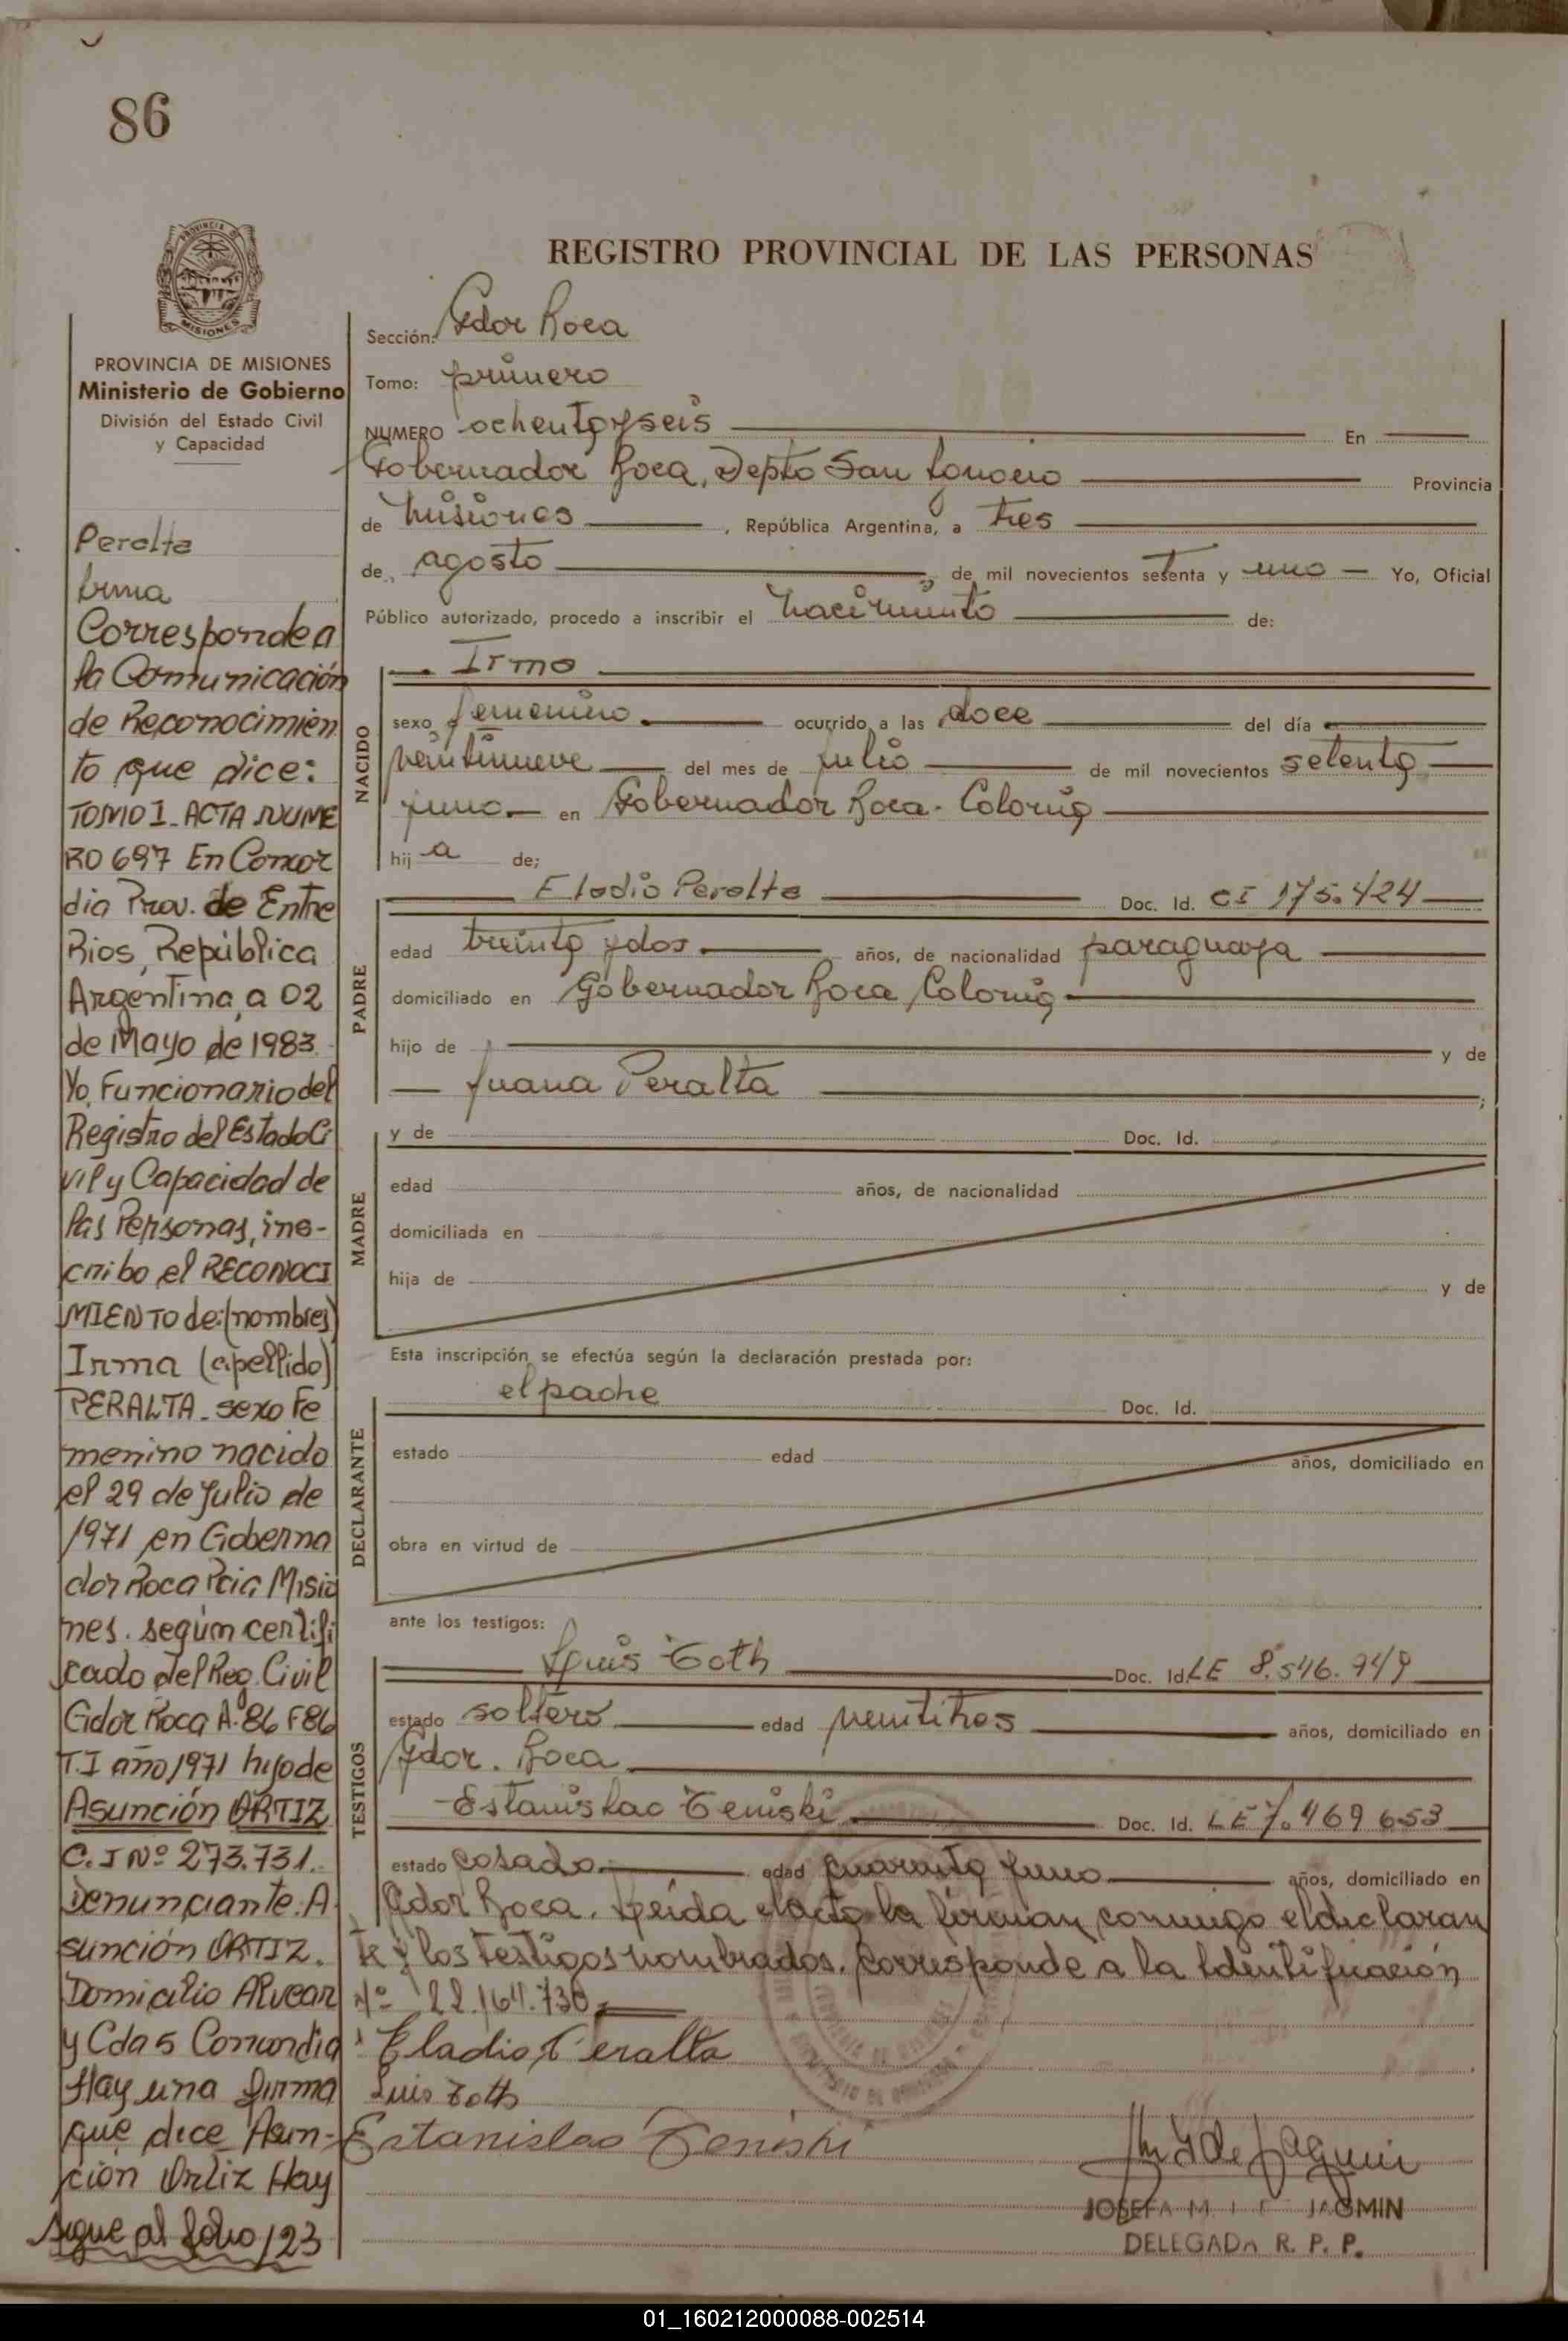 86
REGISTRO PROVINCIAL DE LAS PERSONAS
PROVINCIA DE MISIONES
Ministerio de Gobierno
División del Estado Civil
y Capacidad
Peralta
Irma
Corresponde a
la Comunicación
de Reconocimien
to que dice:
TOMO I - ACTA NUME
RO 697 En Concor
dia Prov. de Entre
Rios, República
Argentina, a 02
de Mayo de 1983
Yo, Funcionario del
Registro del Estado Ci
vil y Capacidad de
las Personas, ins-
cribo el RECONOCI
MIENTO de: (nombres)
Irma (apellido)
PERALTA - sexo Fe
menino nacido
el 29 de Julio de
1971 en Goberna
dor Roca Pcia Misio
nes. según certifi
cado del Reg. Civil
Gdor Roca A. 86 F 86
T.I año 1971 hijo de
Asunción ORTIZ
C.I Nº 273.731.
Denunciante: A
sunción ORTIZ.
Domicilio Alvear
y Cda 5 Concordia
Hay una firma
que dice Asun-
ción Ortiz Hay
sigue al folio 123
Sección: Gdor Roca
Tomo: primero
NUMERO ochenta y seis En
Gobernador Roca, Depto San Ignacio Provincia
de Misiones, República Argentina, a tres
de agosto de mil novecientos setenta y uno Yo, Oficial
Público autorizado, procedo a inscribir el nacimiento de:
NACIDO
Irma
sexo femenino ocurrido a las doce del día
veintinueve del mes de julio de mil novecientos setenta
y uno en Gobernador Roca - Colonia
hij a de;
PADRE
Eladio Peralta Doc. Id. CI 175.424
edad treinta y dos años, de nacionalidad paraguaya
domiciliado en Gobernador Roca Colonia
hijo de y de
Juana Peralta ;
MADRE
y de Doc. Id.
edad años, de nacionalidad
domiciliada en
hija de y de
Esta inscripción se efectúa según la declaración prestada por:
DECLARANTE
el padre Doc. Id.
estado edad años, domiciliado en
obra en virtud de
ante los testigos:
TESTIGOS
Luis Toth Doc. Id. LE 8.546.949
estado soltero edad veintitres años, domiciliado en
Gdor. Roca
Estanislao Teniski Doc. Id. LE 7.469 653
estado casado edad cuarenta y uno años, domiciliado en
Gdor Roca. Leida el acta la firman conmigo el declaran
te y los testigos nombrados. Corresponde a la Identificación
Nº 22.164.730
Eladio Peralta
Luis Toth
Estanislao Teniski
DELEGADA R. P. P.
01_160212000088-002514